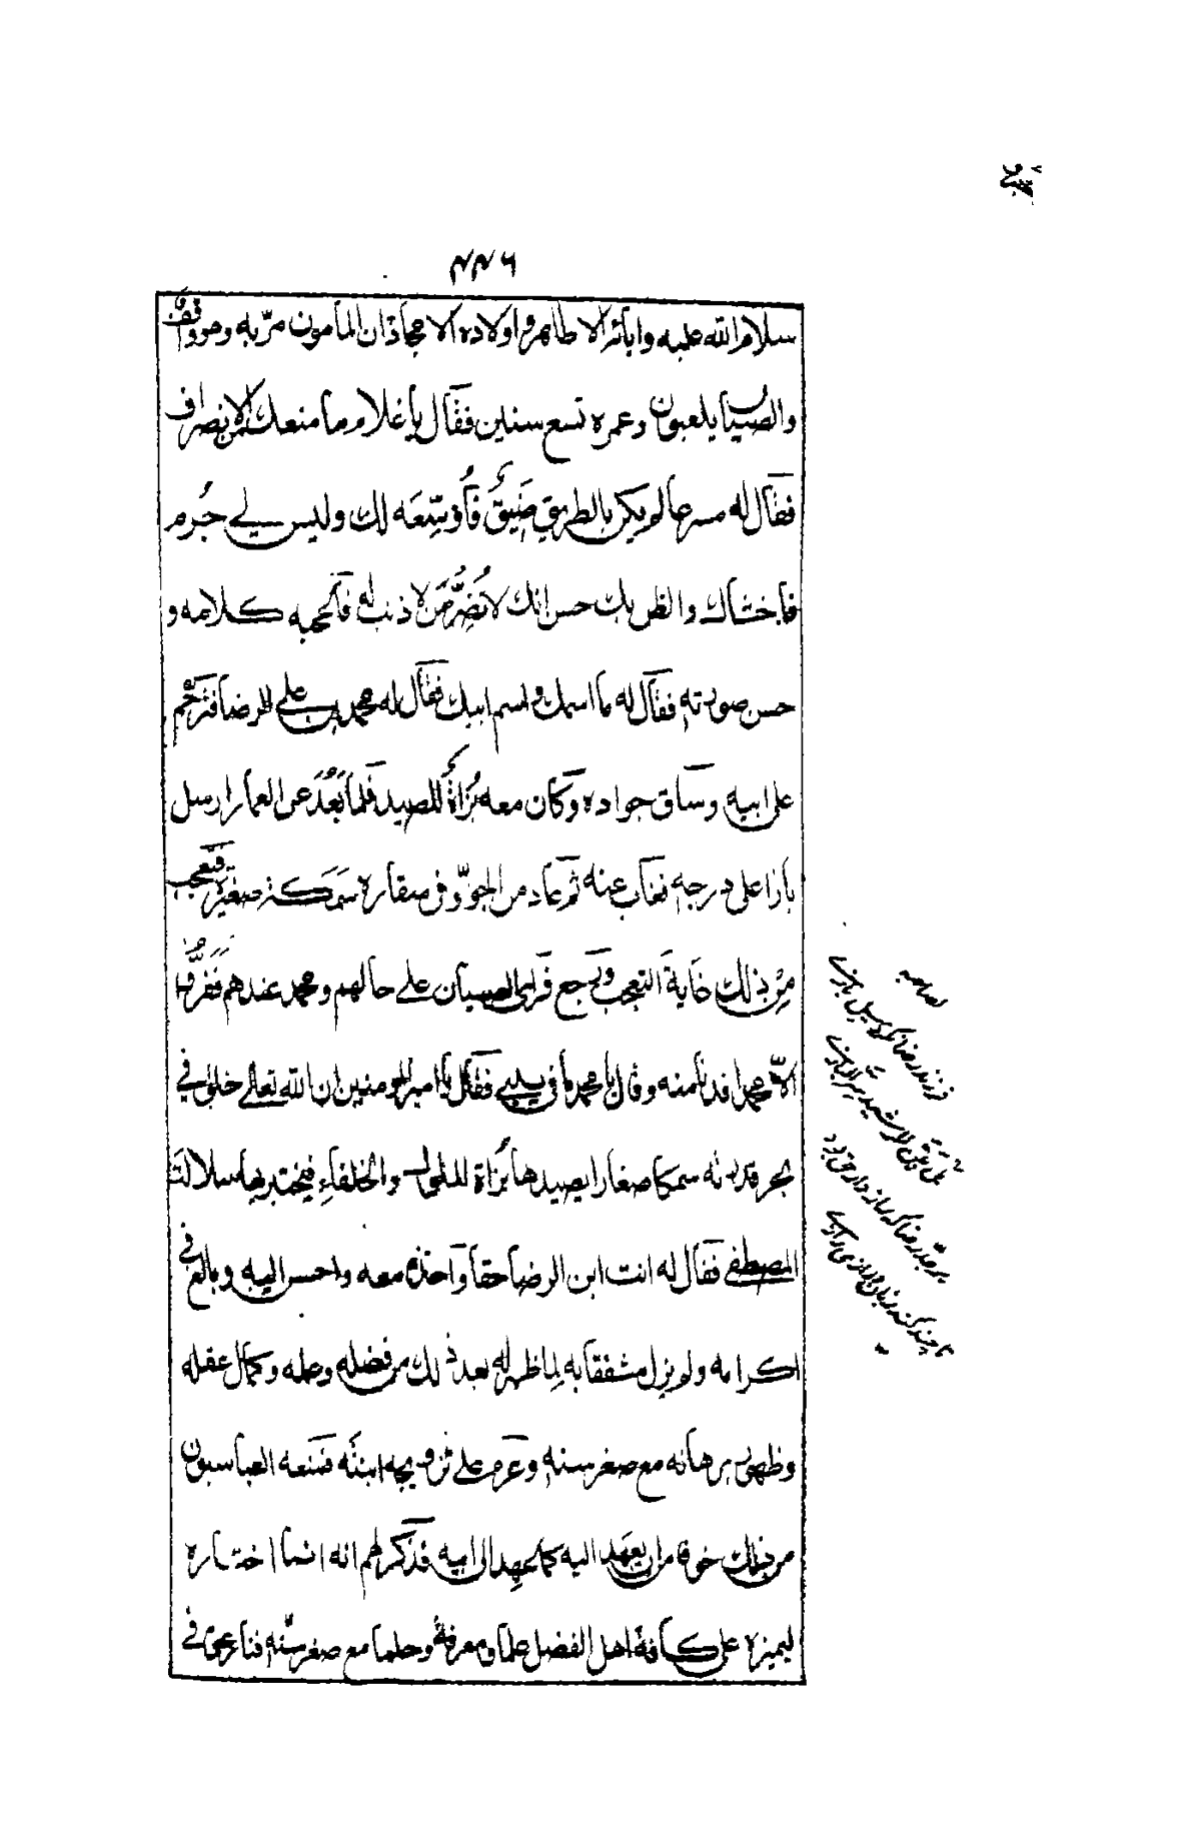 ۴۴۶
سلام الله عليه وابائه الاطاهر واولاده الامجاد ان المأمون مرّ به وهو واقف
والصبيان يلعبون وعمره تسع سنين فقال يا غلام ما منعك من الانصراف
فقال له مسرعا لم يكن بالطريق ضَيقٌ فأُوسِّعَه لك وليس لي جُرم
فاخشاك والظن بك حسن انك لا تُضِرُّ مَن لا ذنب له فاعجبه كلامه و
حسن صورته فقال له ما اسمك واسم ابيك فقال له محمد بن علي الرضا فترَحَّم
على ابيه وساق جواده وكان معه بُزاةٌ للصيد فلما بَعُدَ عن العمار ارسل
بازا على درجه فغاب عنه ثم عاد من الجوّ وفي منقاره سَمَكة صغيرة فتعجب
مِن ذلك غاية التعجب ورجع فراى الصبيان على حالهم ومحمد عندهم ففَرُّوا
الاّ محمد افدنا منه وقال يا محمد ما في يدي فقال يا امير المومنين ان الله تعالى خلق في
بحر قدرته سمكا صغارا يصيدها بُزاة الملوك والخلفاء فيختبر بها سلالة
المصطفى فقال له انت ابن الرضا حقا واخذه معه واحسن اليه وبالغ في
اكرامه ولم يزل مشفقا به لِما ظهر له بعد ذلك من فضله وعلمه وكمال عقله
وظهور برهانه مع صغر سنه وعزم على تزويجه ابنته فمنعه العباسيون
من ذلك خوفا من ان يعهَد اليه كما عهد الى ابيه فذكر لهم انه انما اختاره
ليميزه على كافة اهل الفضل علما ومعرفة وحلما مع صغر سنّه فنازعوا في